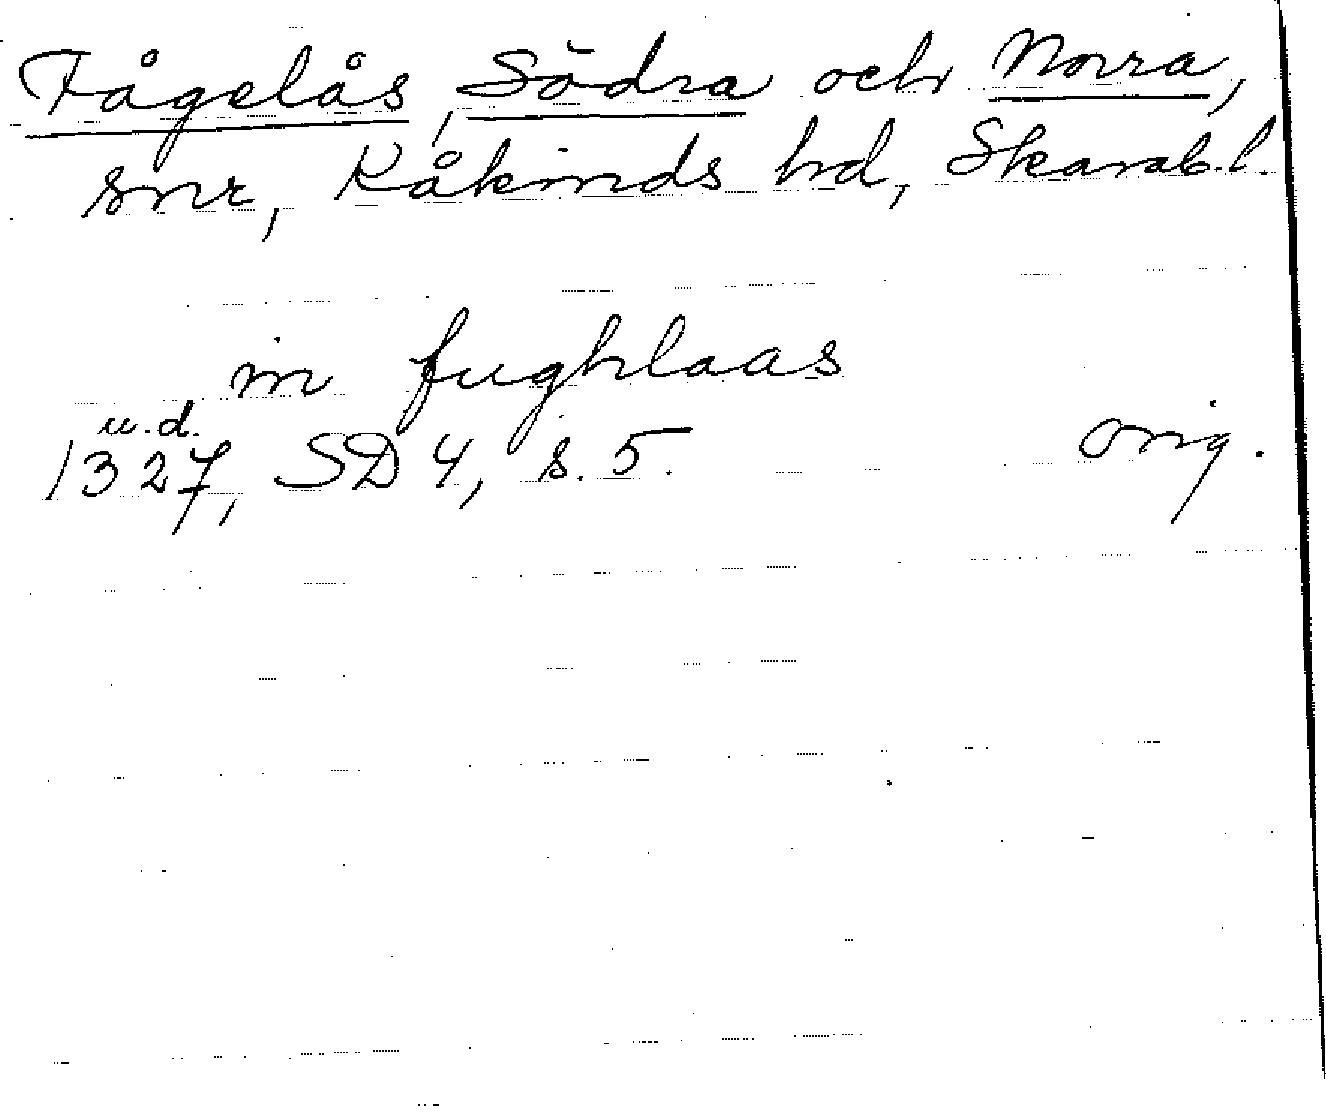 Fågelås, Södra och Norra,
snr, Kåkinds hd, Skarab.l.
in fughlaas
u.d.
1327, SD 4, s. 5. orig.